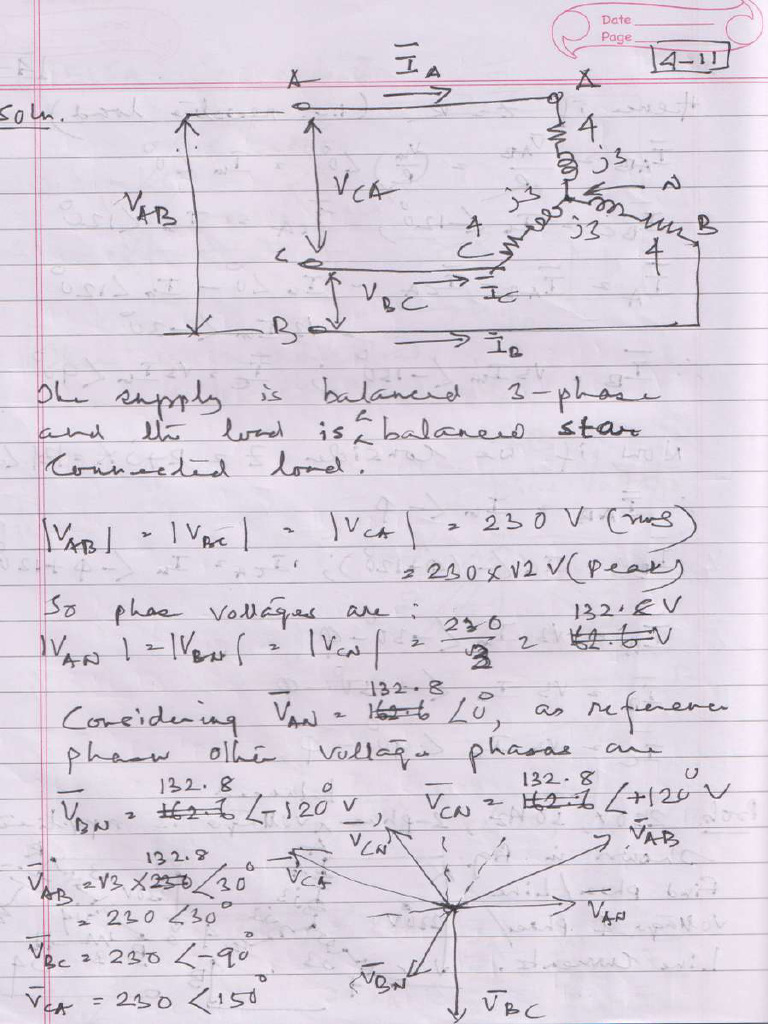 Date
Page
4-11
Soln.
A
I̅A
A
4
j3
VCA
VAB
N
j3
B
4
C
j3
4
C
VBC
I̅C
B
I̅B
The supply is balanced 3-phase
and the load is a balanced star
Connected load.
|VAB| = |VBC| = |VCA| = 230 V (rms)
= 230 x √2 V (peak)
So phase voltages are:
|VAN| = |VBN| = |VCN| = 230/√3 = 132.8 V
Considering V̅AN = 132.8 ∠0°, as reference
phasor other voltage phasors are
V̅BN = 132.8 ∠-120° V, V̅CN = 132.8 ∠+120° V
V̅AB = √3 x 132.8 ∠30°
= 230 ∠30°
V̅BC = 230 ∠-90°
V̅CA = 230 ∠150°
V̅CN
V̅AB
V̅CA
V̅AN
V̅BN
V̅BC